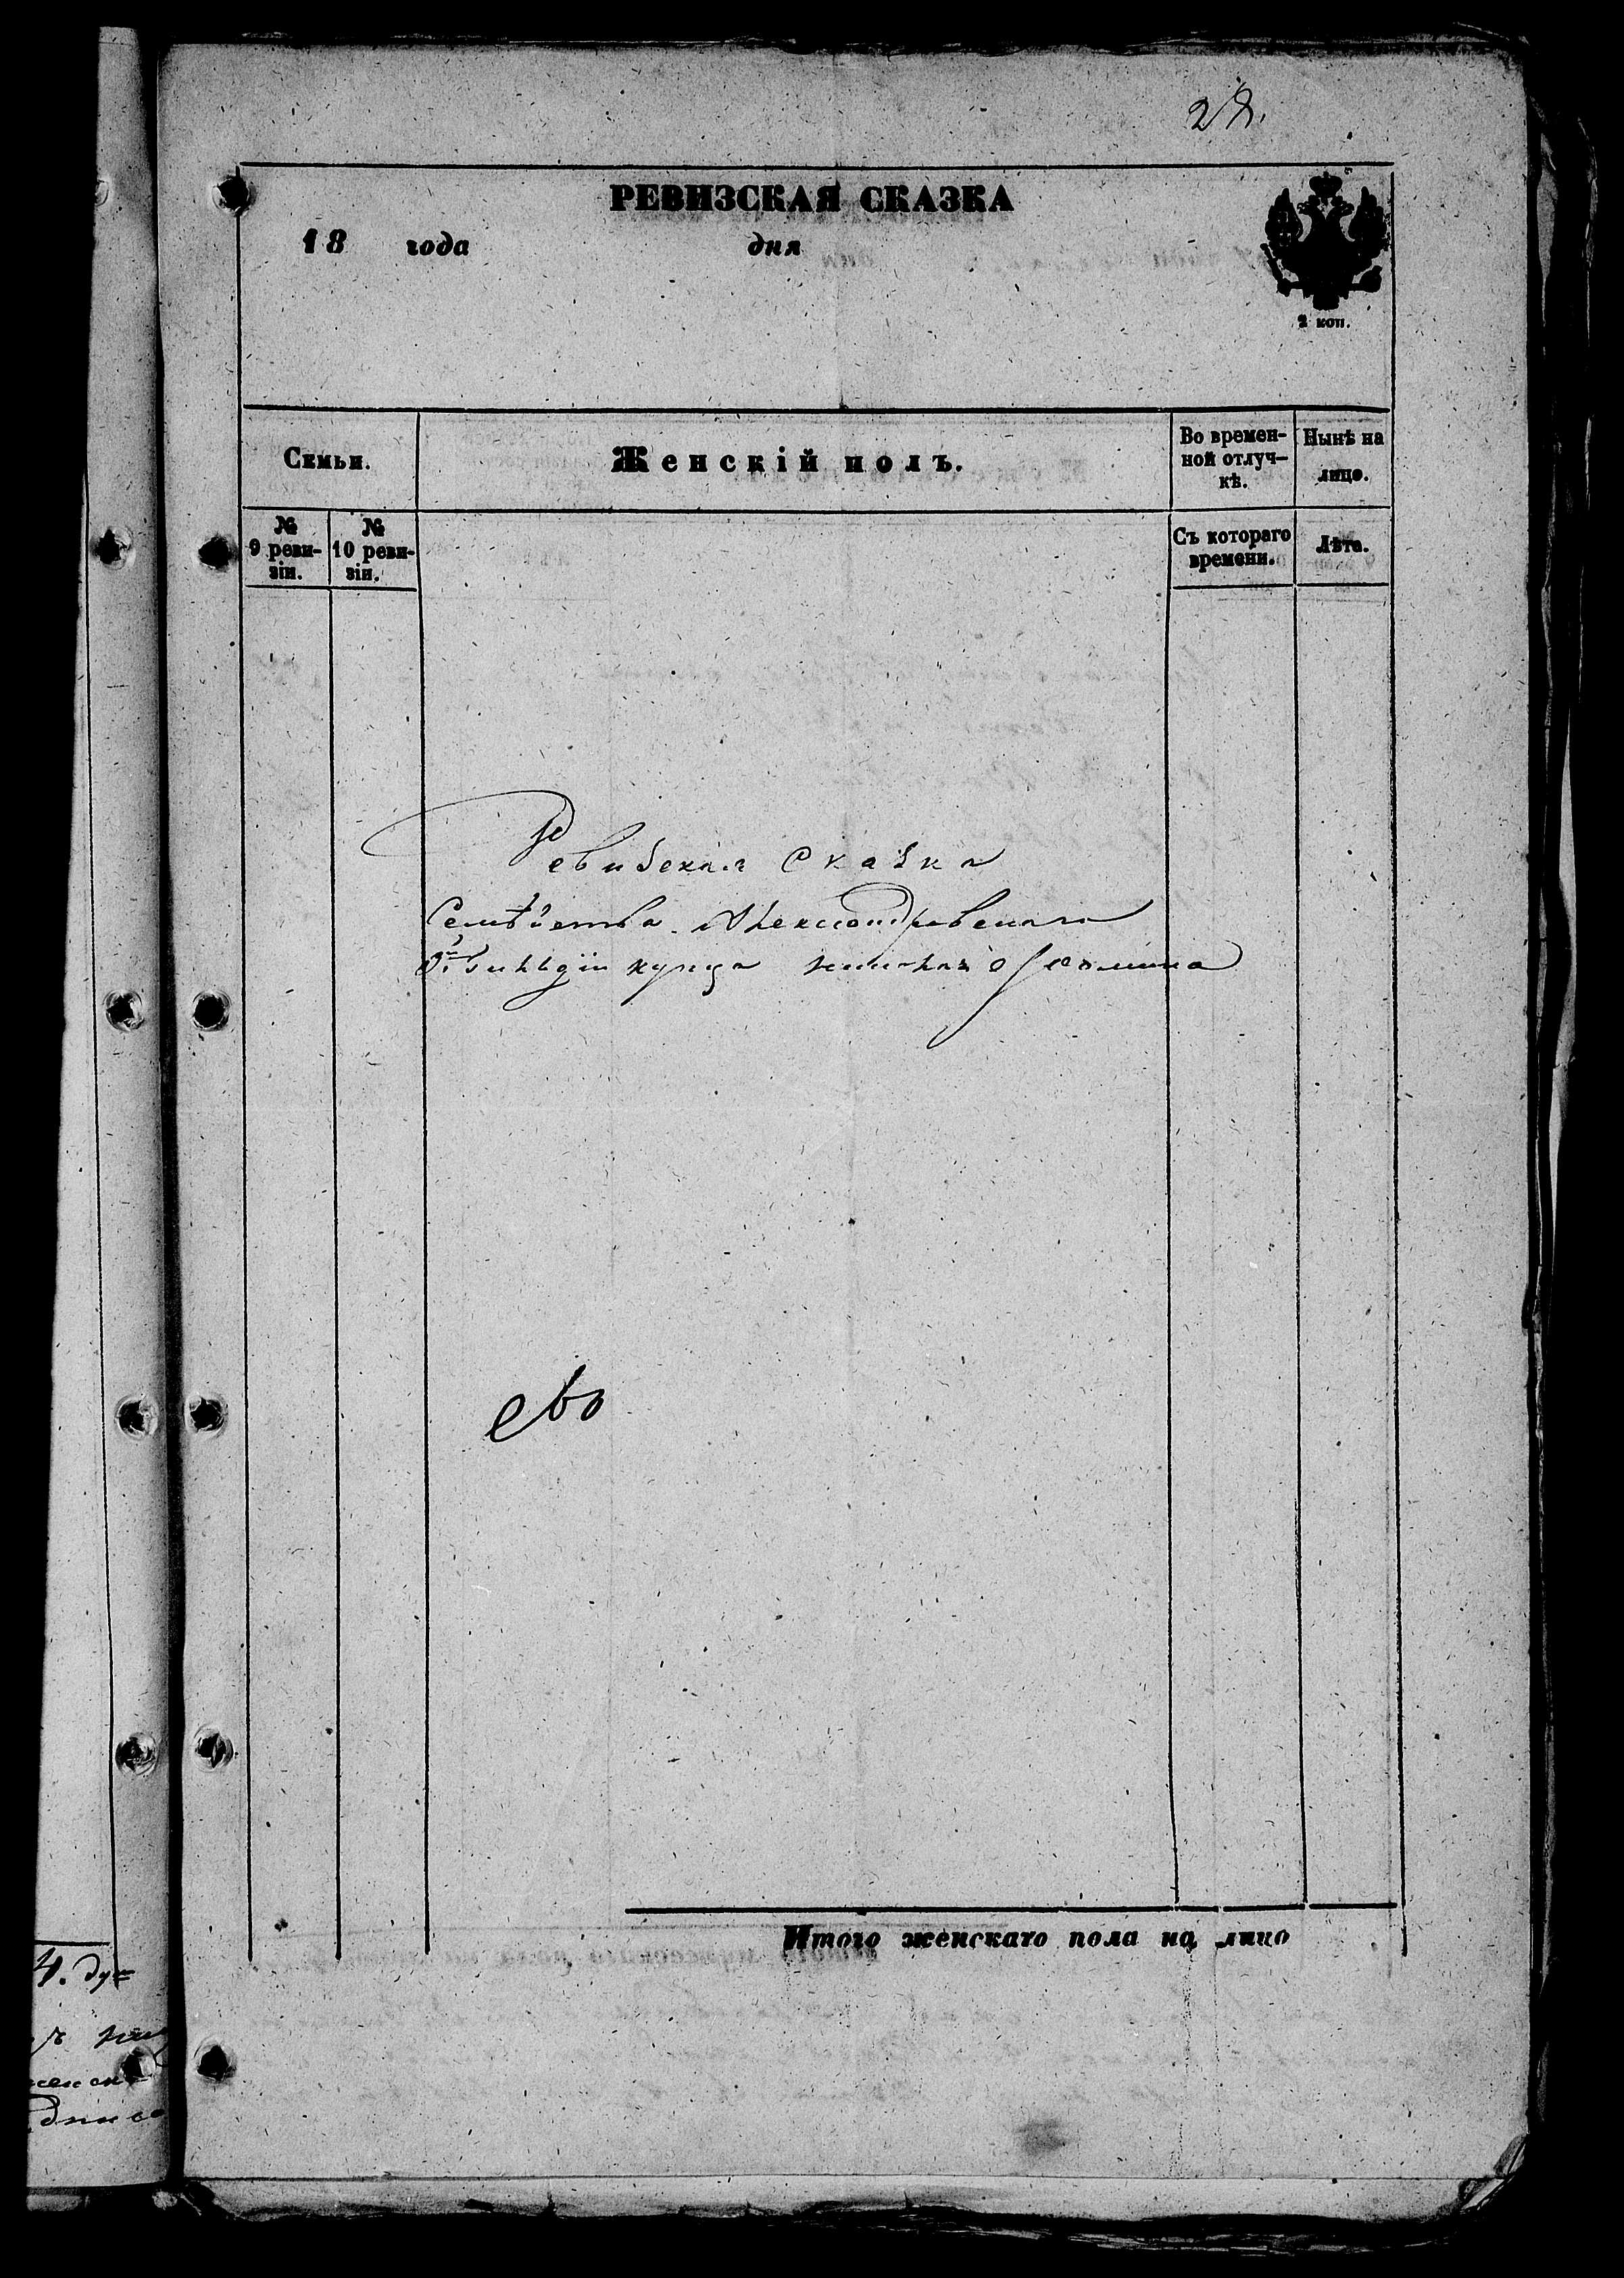 28.
РЕВИЗСКАЯ СКАЗКА
18 года дня
2 коп.
Семьи.
Женскій полъ.
Во времен-
ной отлуч-
кѣ.
Нынѣ на
лицо.
№
9 реви-
зіи.
№
10 реви-
зіи.
Съ котораго
времени.
Лѣта.
Ревизская Сказка
Семѣйства Александровскаго
3й гильдіи купца Николая
Итого женскаго пола на лицо
4. ду=